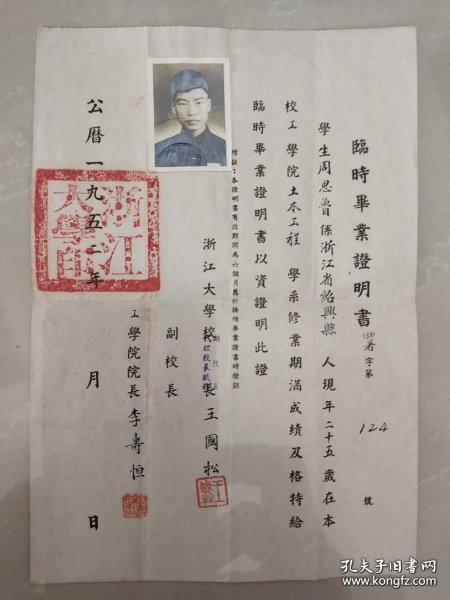 臨時畢業證明書
字第 124 號
學生周思魯係浙江省紹興縣人現年二十五歲在本
校工學院土木工程學系修業期滿成績及格特給
臨時畢業證明書以資證明此證
附註：本證明書有效期間為六個月應於換領畢業證書時繳銷
浙江大學校長王國松
副校長
代理校長職務
副校長
工學院院長李壽恒
公曆一九五二年 月 日
浙江大學印
孔夫子旧书网
www.kongfz.com